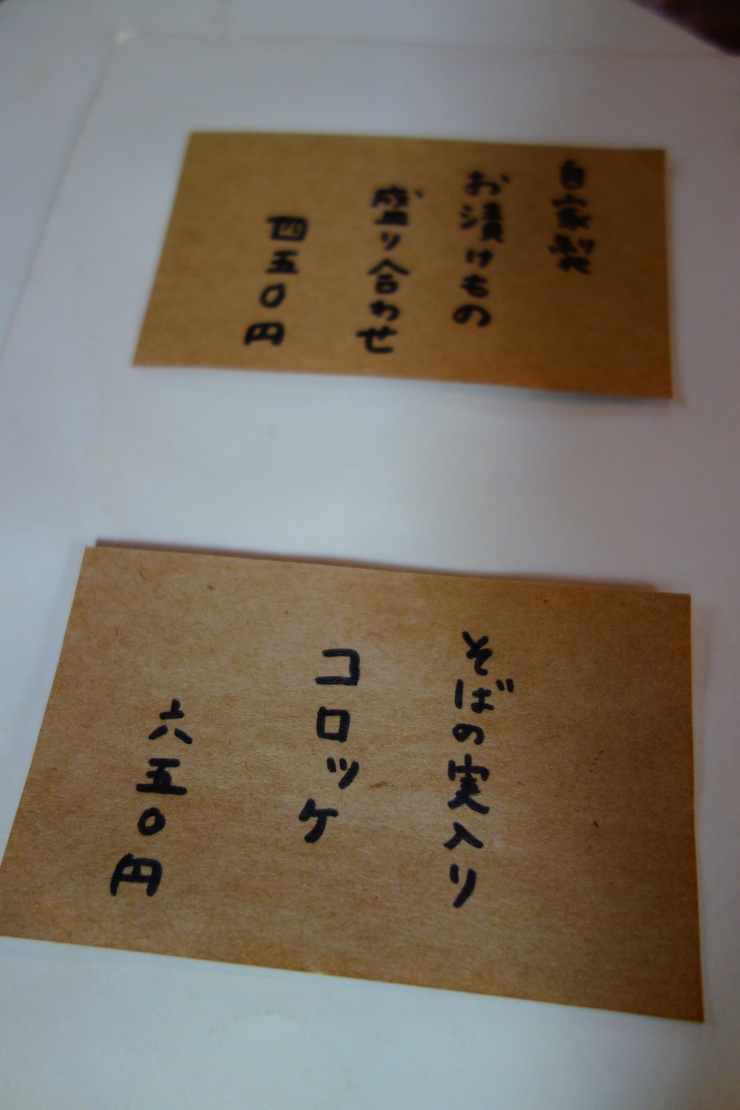 自家製
お漬けもの
盛り合わせ
四五〇円
そばの実入り
コロッケ
六五〇円